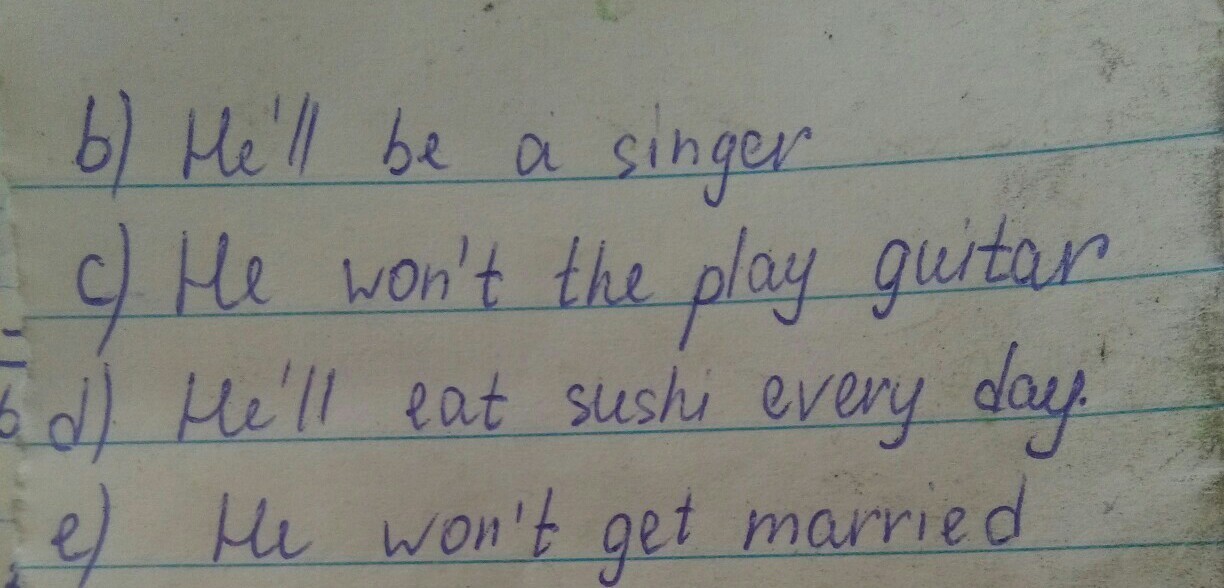 b) He'll be a singer
c) He won't the play guitar
d) He'll eat sushi every day.
e) He won't get married